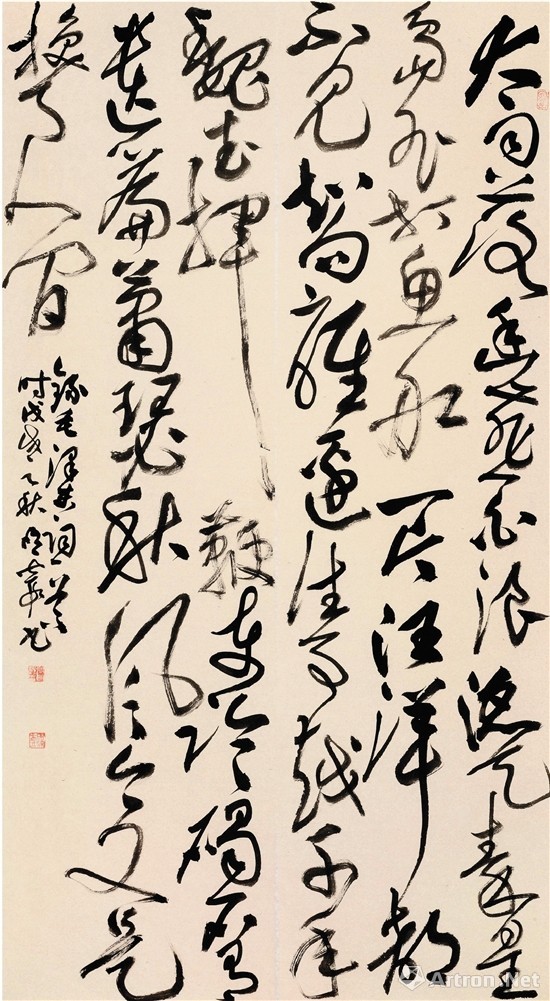 大雨落幽燕白浪滔天秦皇
島外打魚船一片汪洋都
不見知向誰邊往事越千年
魏武揮鞭东临碣石有
遺篇蕭瑟秋风今又是
换了人间
錄毛澤東词一首
时戊之秋華书
Artron.Net